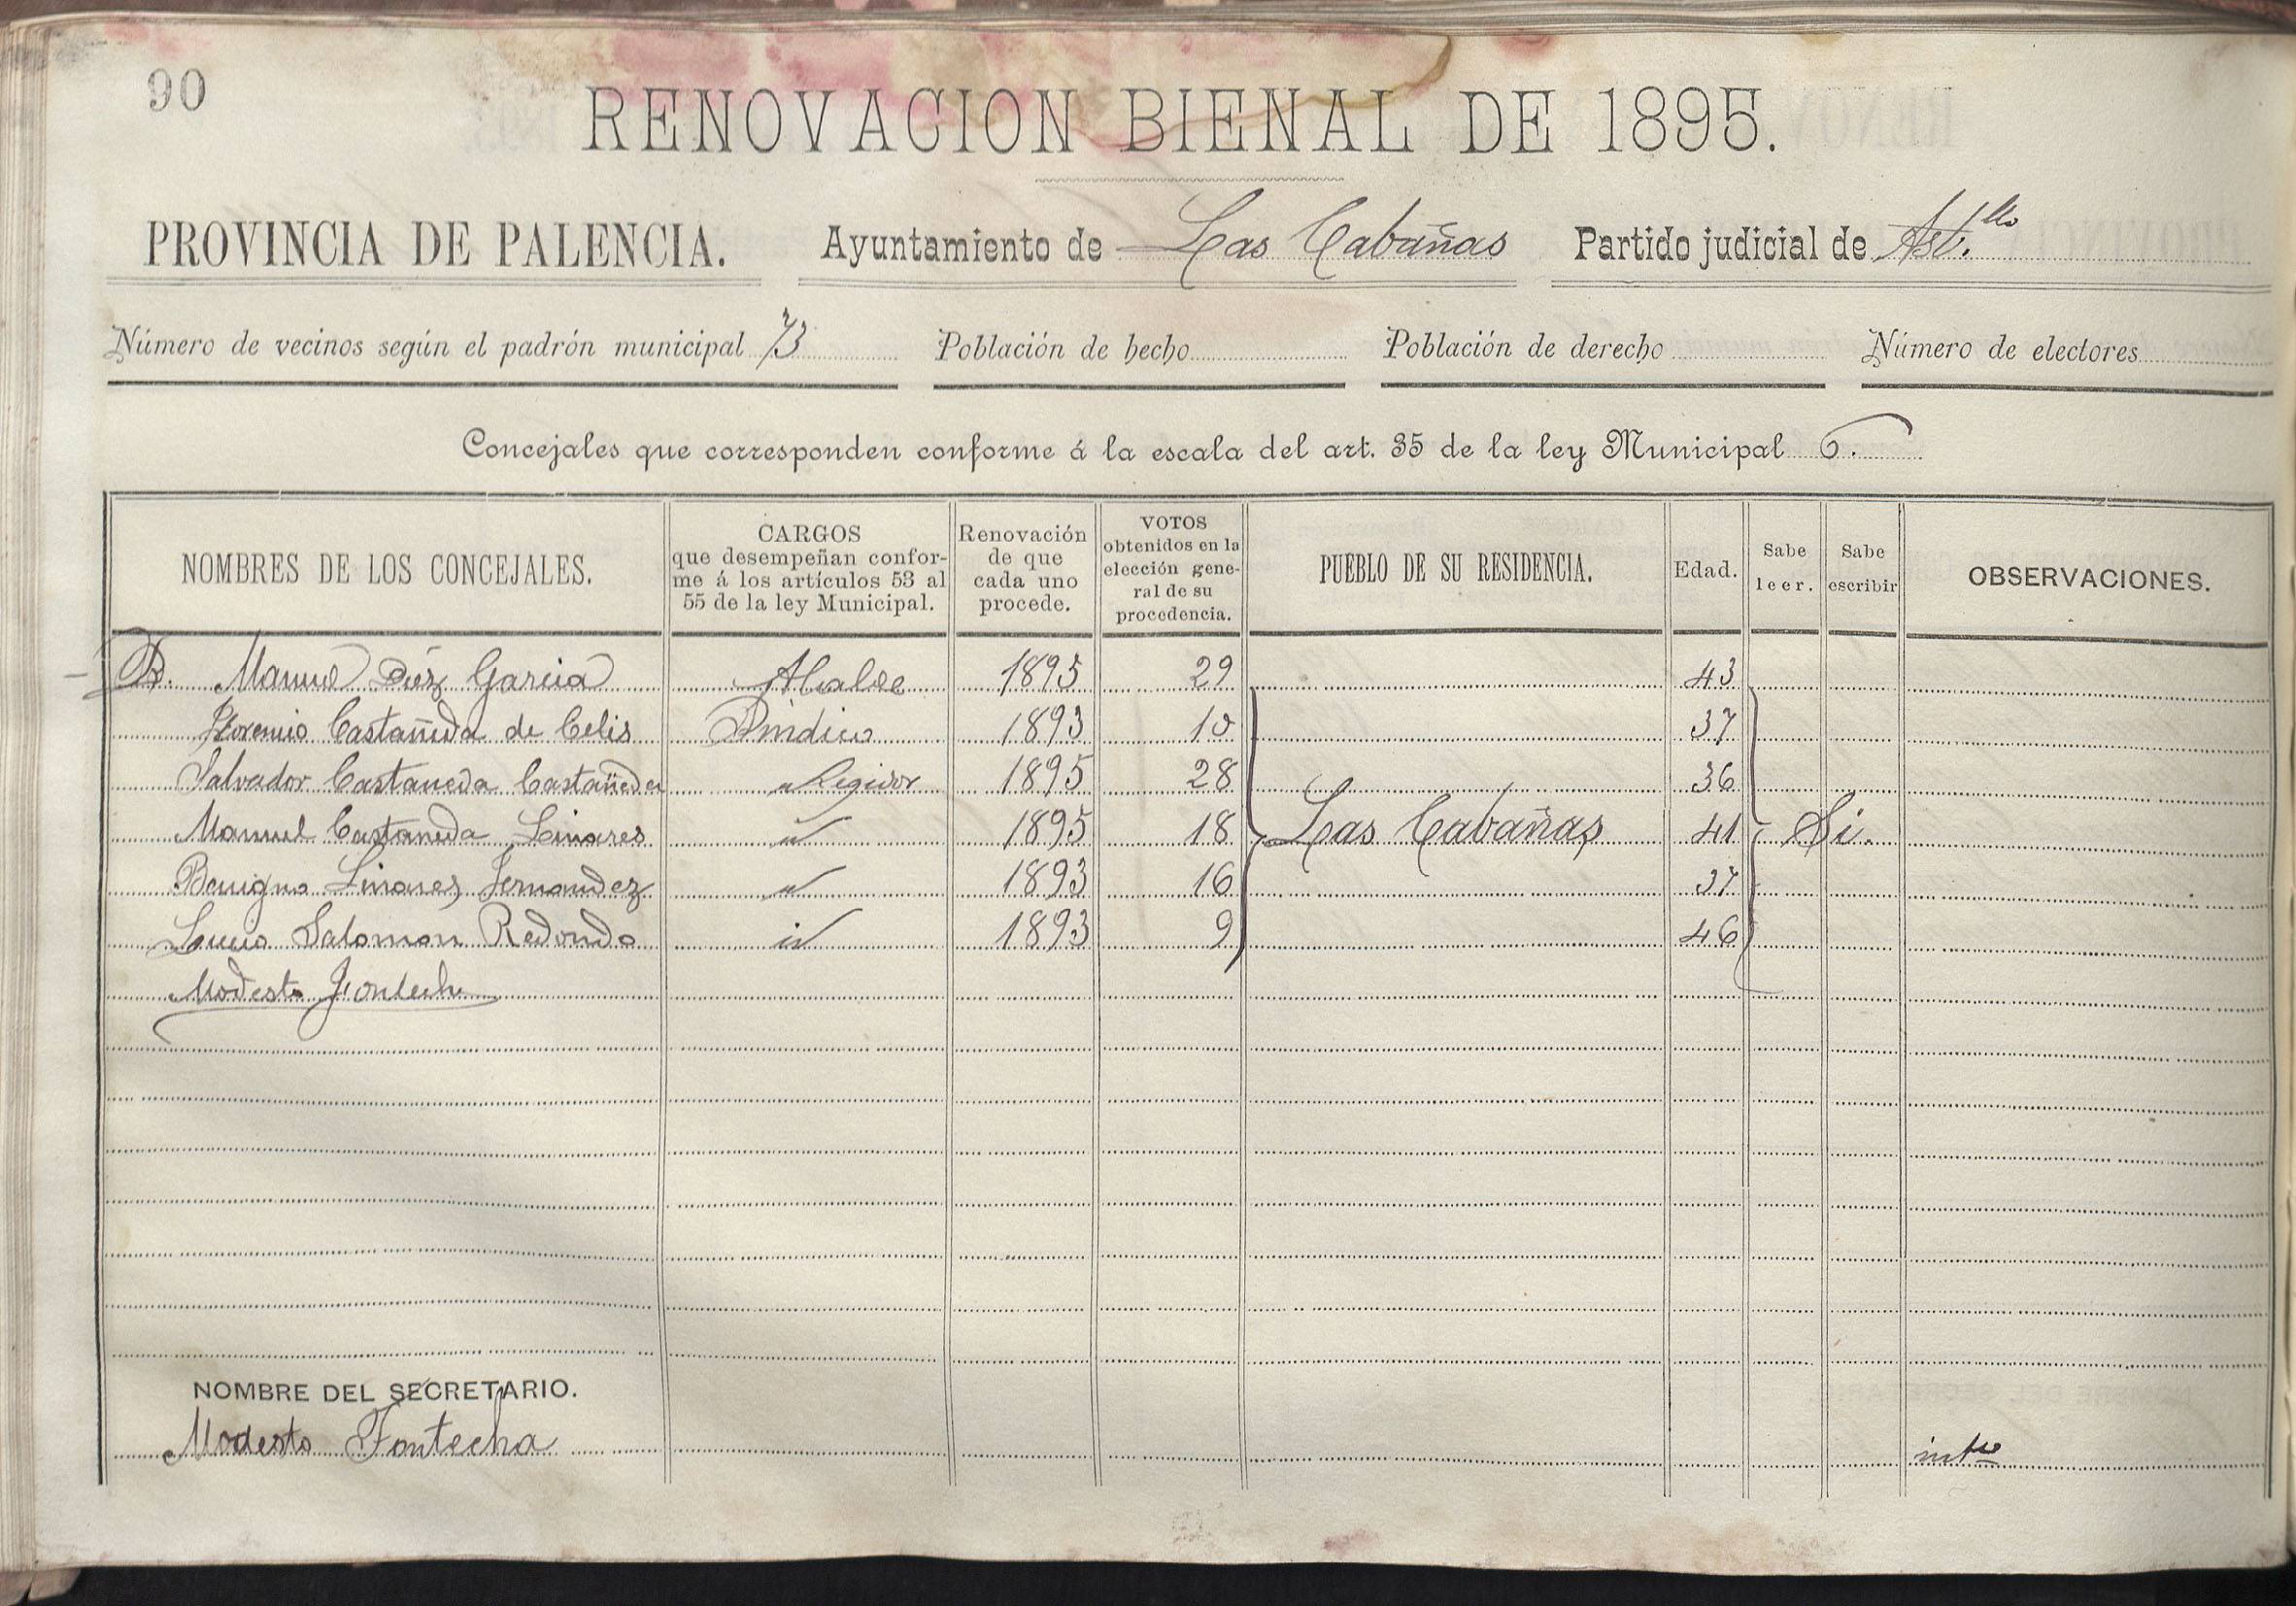 90
RENOVACION BIENAL DE 1895.
PROVINCIA DE PALENCIA. Ayuntamiento de Las Cabañas Partido judicial de Ast.llo
Número de vecinos según el padrón municipal 73 Población de hecho Población de derecho Número de electores
Concejales que corresponden conforme á la escala del art. 35 de la ley Municipal 6.
NOMBRES DE LOS CONCEJALES.
CARGOS
que desempeñan confor-
me á los artículos 53 al
55 de la ley Municipal.
Renovación
de que
cada uno
procede.
VOTOS
obtenidos en la
elección gene-
ral de su
procedencia.
PUEBLO DE SU RESIDENCIA.
Edad.
Sabe
leer.
Sabe
escribir
OBSERVACIONES.
D. Manuel Diez Garcia Alcalde 1895 29 43
Florencio Castañeda de Celis Sindico 1893 10 37
Salvador Castaneda Castañeda Regidor 1895 28 36
Manuel Castaneda Linares id 1895 18 Las Cabañas 41 Si.
Benigno Linares Fernandez id 1893 16 37
Lucio Salomon Redondo id 1893 9 46
Modesto Fontecha
NOMBRE DEL SECRETARIO.
Modesto Fontecha into